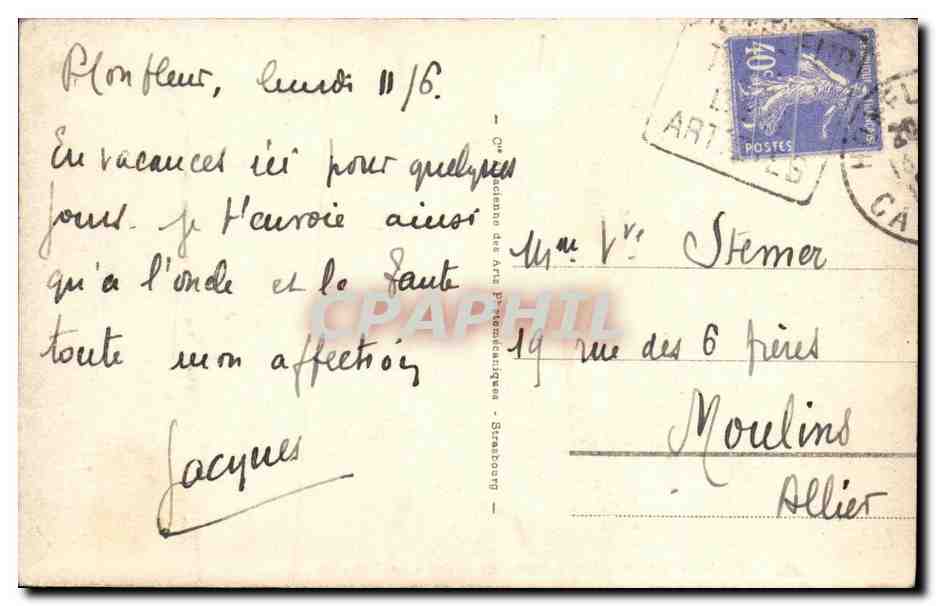 Honfleur, lundi 11/6.
En vacances ici pour quelques
jours. je t'envoie ainsi
qu'à l'oncle et la Tante
toute mon affection
Jacques
Cie Alsacienne des Arts Photomécaniques - Strasbourg
40c
POSTES
ART
CA
Mme Vve Stemer
19 rue des 6 frères
Moulins
Allier
CPAPHIL